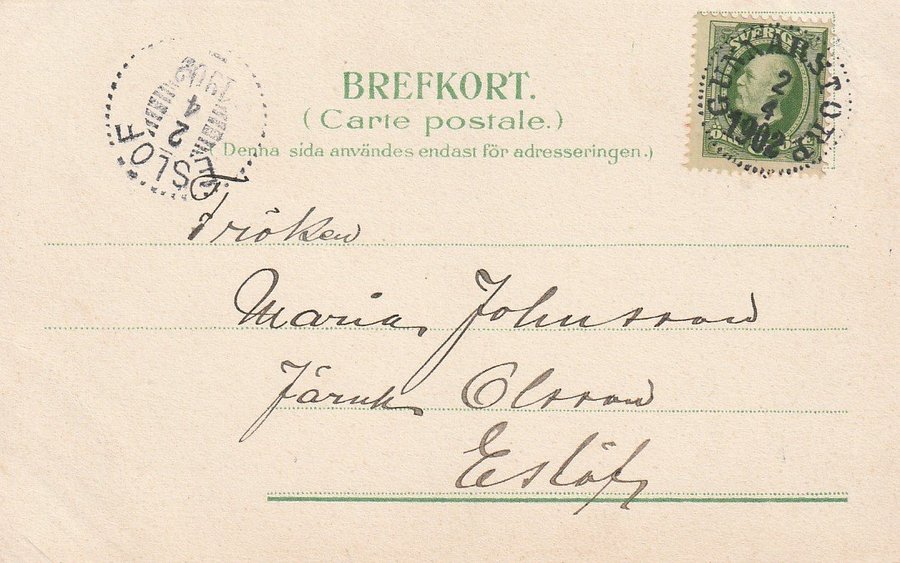 BREFKORT.
(Carte postale.)
(Denna sida användes endast för adresseringen.)
SVERIGE
GUNNARSTORP
2
4
1902
ESLÖF
2
4
1902
Fröken
Maria Johnsson
Järnh. Olsson
Eslöf